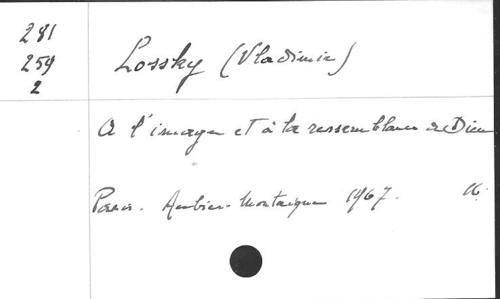 281
259
2
Lossky (Vladimir)
A l'image et à la ressemblance de Dieu
Paris. Aubier-Montaigne 1967.